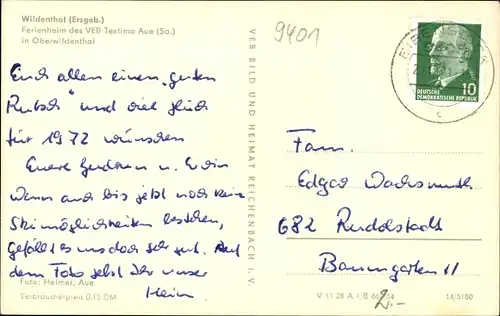 Wildenthal (Erzgeb.)
Ferienheim des VEB Textima Aue (Sa.)
in Oberwildenthal
9401
Euch allen einen „guten
Rutsch" und viel Glück
für 1972 wünschen
Euere u. Erwin
Wenn auch bis jetzt noch keine
Skimöglichkeiten bestehen,
gefällt es uns doch sehr gut. Auf
dem Foto seht Ihr unser
Heim.
Foto: Helmer, Aue
Verbraucherpreis 0,15 DM
VEB BILD UND HEIMAT REICHENBACH i. V.
10
DEUTSCHE
DEMOKRATISCHE REPUBLIK
Fam.
Edgar Wachsmuth
682 Rudolstadt
Baumgarten 11
V 11 28 A I/B 64
14/5180
2,-